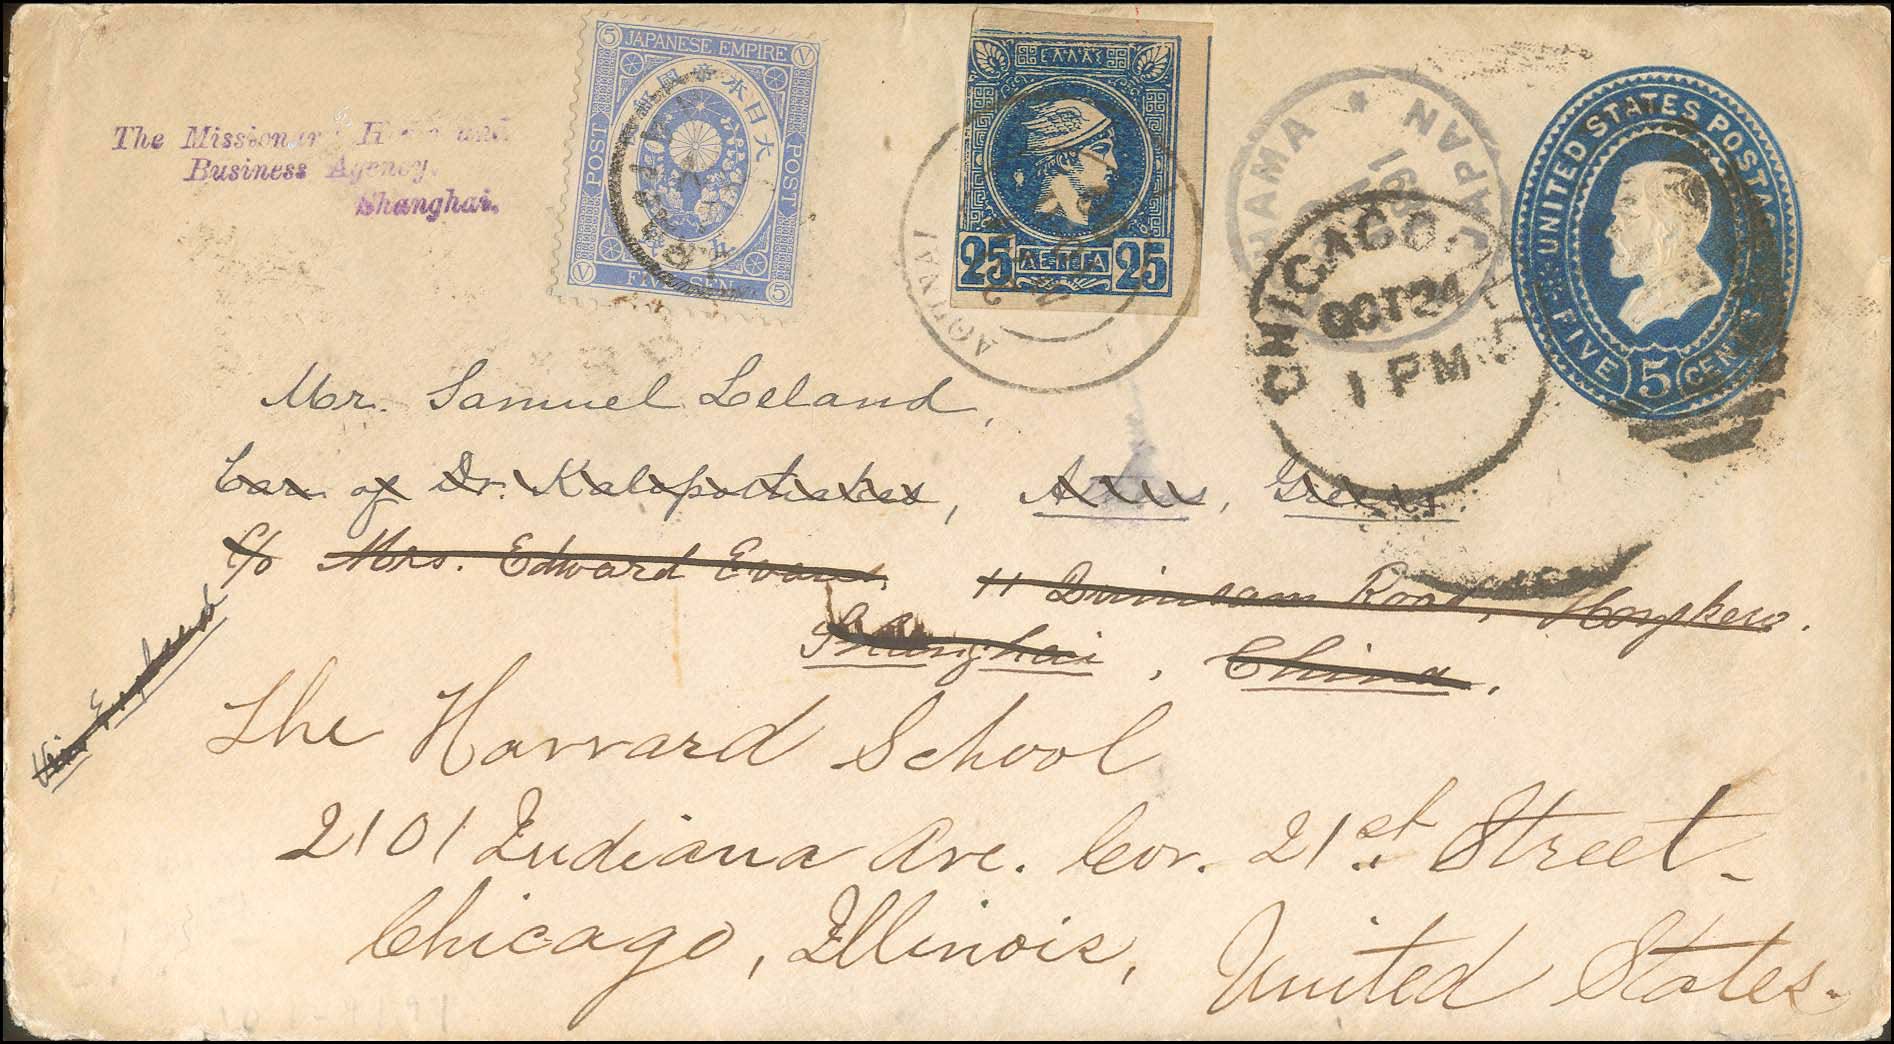 5 JAPANESE EMPIRE V
POST
POST
大日本帝國郵
五
V FIVE SEN 5
ΕΛΛΑΣ
25 ΛΕΠΤΑ 25
ΑΘΗΝΑΙ
HAMA ★ JAPAN
91
CHICAGO
OCT 24
1 PM
UNITED STATES POSTAGE
FIVE 5 CENTS
The Missionary Home and
Business Agency,
Shanghai.
Mr. Samuel Leland,
Care of Dr. Kalopothakes, Athens, Greece
c/o Mrs. Edward Evans, 11 Road, Hongkew.
Shanghai, China.
Via England
The Harvard School
2101 Indiana Ave. Cor. 21st Street
Chicago, Illinois, United States.